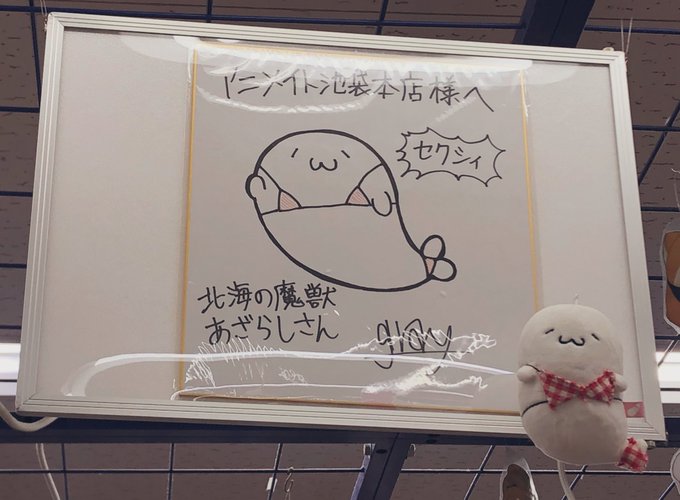 アニメイト池袋本店様へ
セクシィ
北海の魔獣
あざらしさん